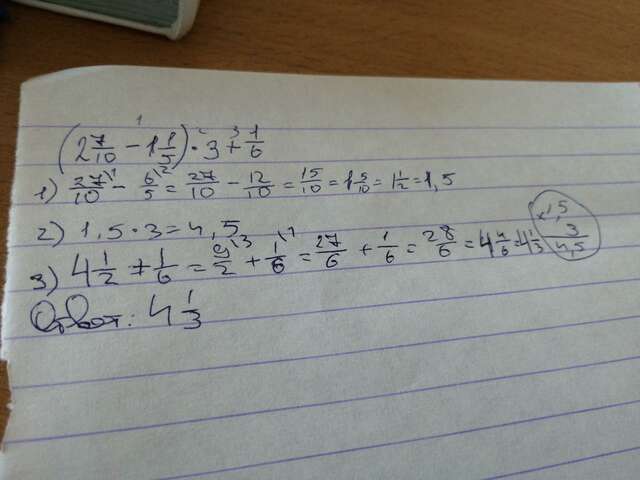 (2 7/10 - 1 1/5) · 3 + 1/6
1) 27/10 - 6/5 = 27/10 - 12/10 = 15/10 = 1 5/10 = 1 1/2 = 1,5
2) 1,5 · 3 = 4,5
3) 4 1/2 + 1/6 = 9/2 + 1/6 = 27/6 + 1/6 = 28/6 = 4 4/6 = 4 1/3
× 1,5
3
4,5
Ответ: 4 1/3